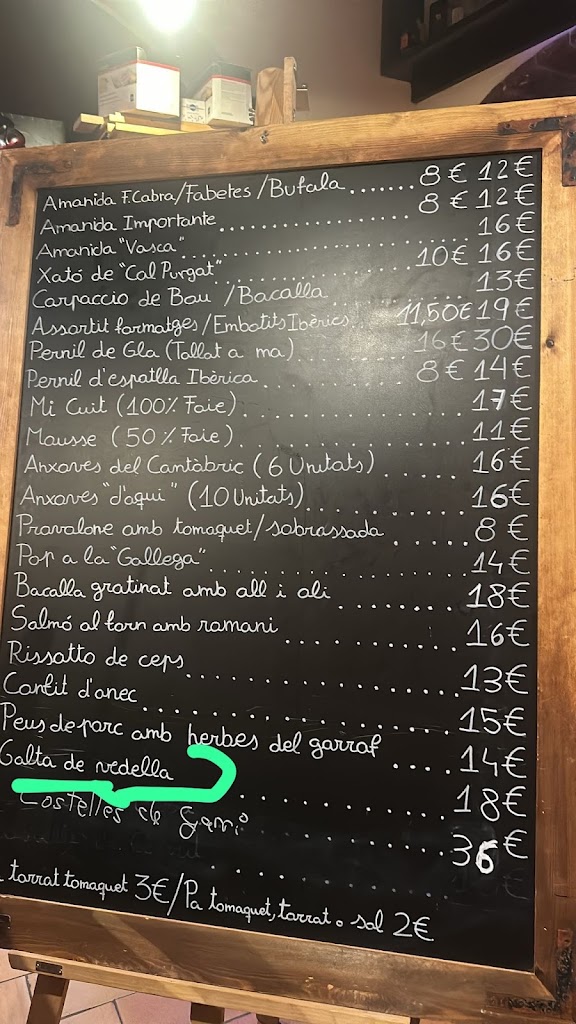 Amanida F.Cabra/Fabetes/Bufala....... 8€ 12€
Amanida Importante................ 8€ 12€
Amanida "Vasca"................ 16€
Xató de "Cal Purgat"................ 10€ 16€
Carpaccio de Bou /Bacalla................ 13€
Assortit formatges/Embotits Ibèrics... 11,50€ 19€
Pernil de Gla (Tallat a ma)................ 16€ 30€
Pernil d'espatlla Ibèrica................ 8€ 14€
Mi Cuit (100% Foie)................ 17€
Mousse (50% Foie)................ 11€
Anxoves del Cantàbric (6 Unitats)...... 16€
Anxoves "d'aqui" (10 Unitats)............ 16€
Provalone amb tomaquet/sobrassada..... 8€
Pop a la "Gallega"................ 14€
Bacalla gratinat amb all i oli........ 18€
Salmó al forn amb romani............ 16€
Rissotto de ceps................ 13€
Confit d'anec................ 15€
Peus de porc amb herbes del garraf.... 14€
Galta de vedella................ 18€
Costelles de 36€
torrat tomaquet 3€/Pa tomaquet, torrat o sol 2€